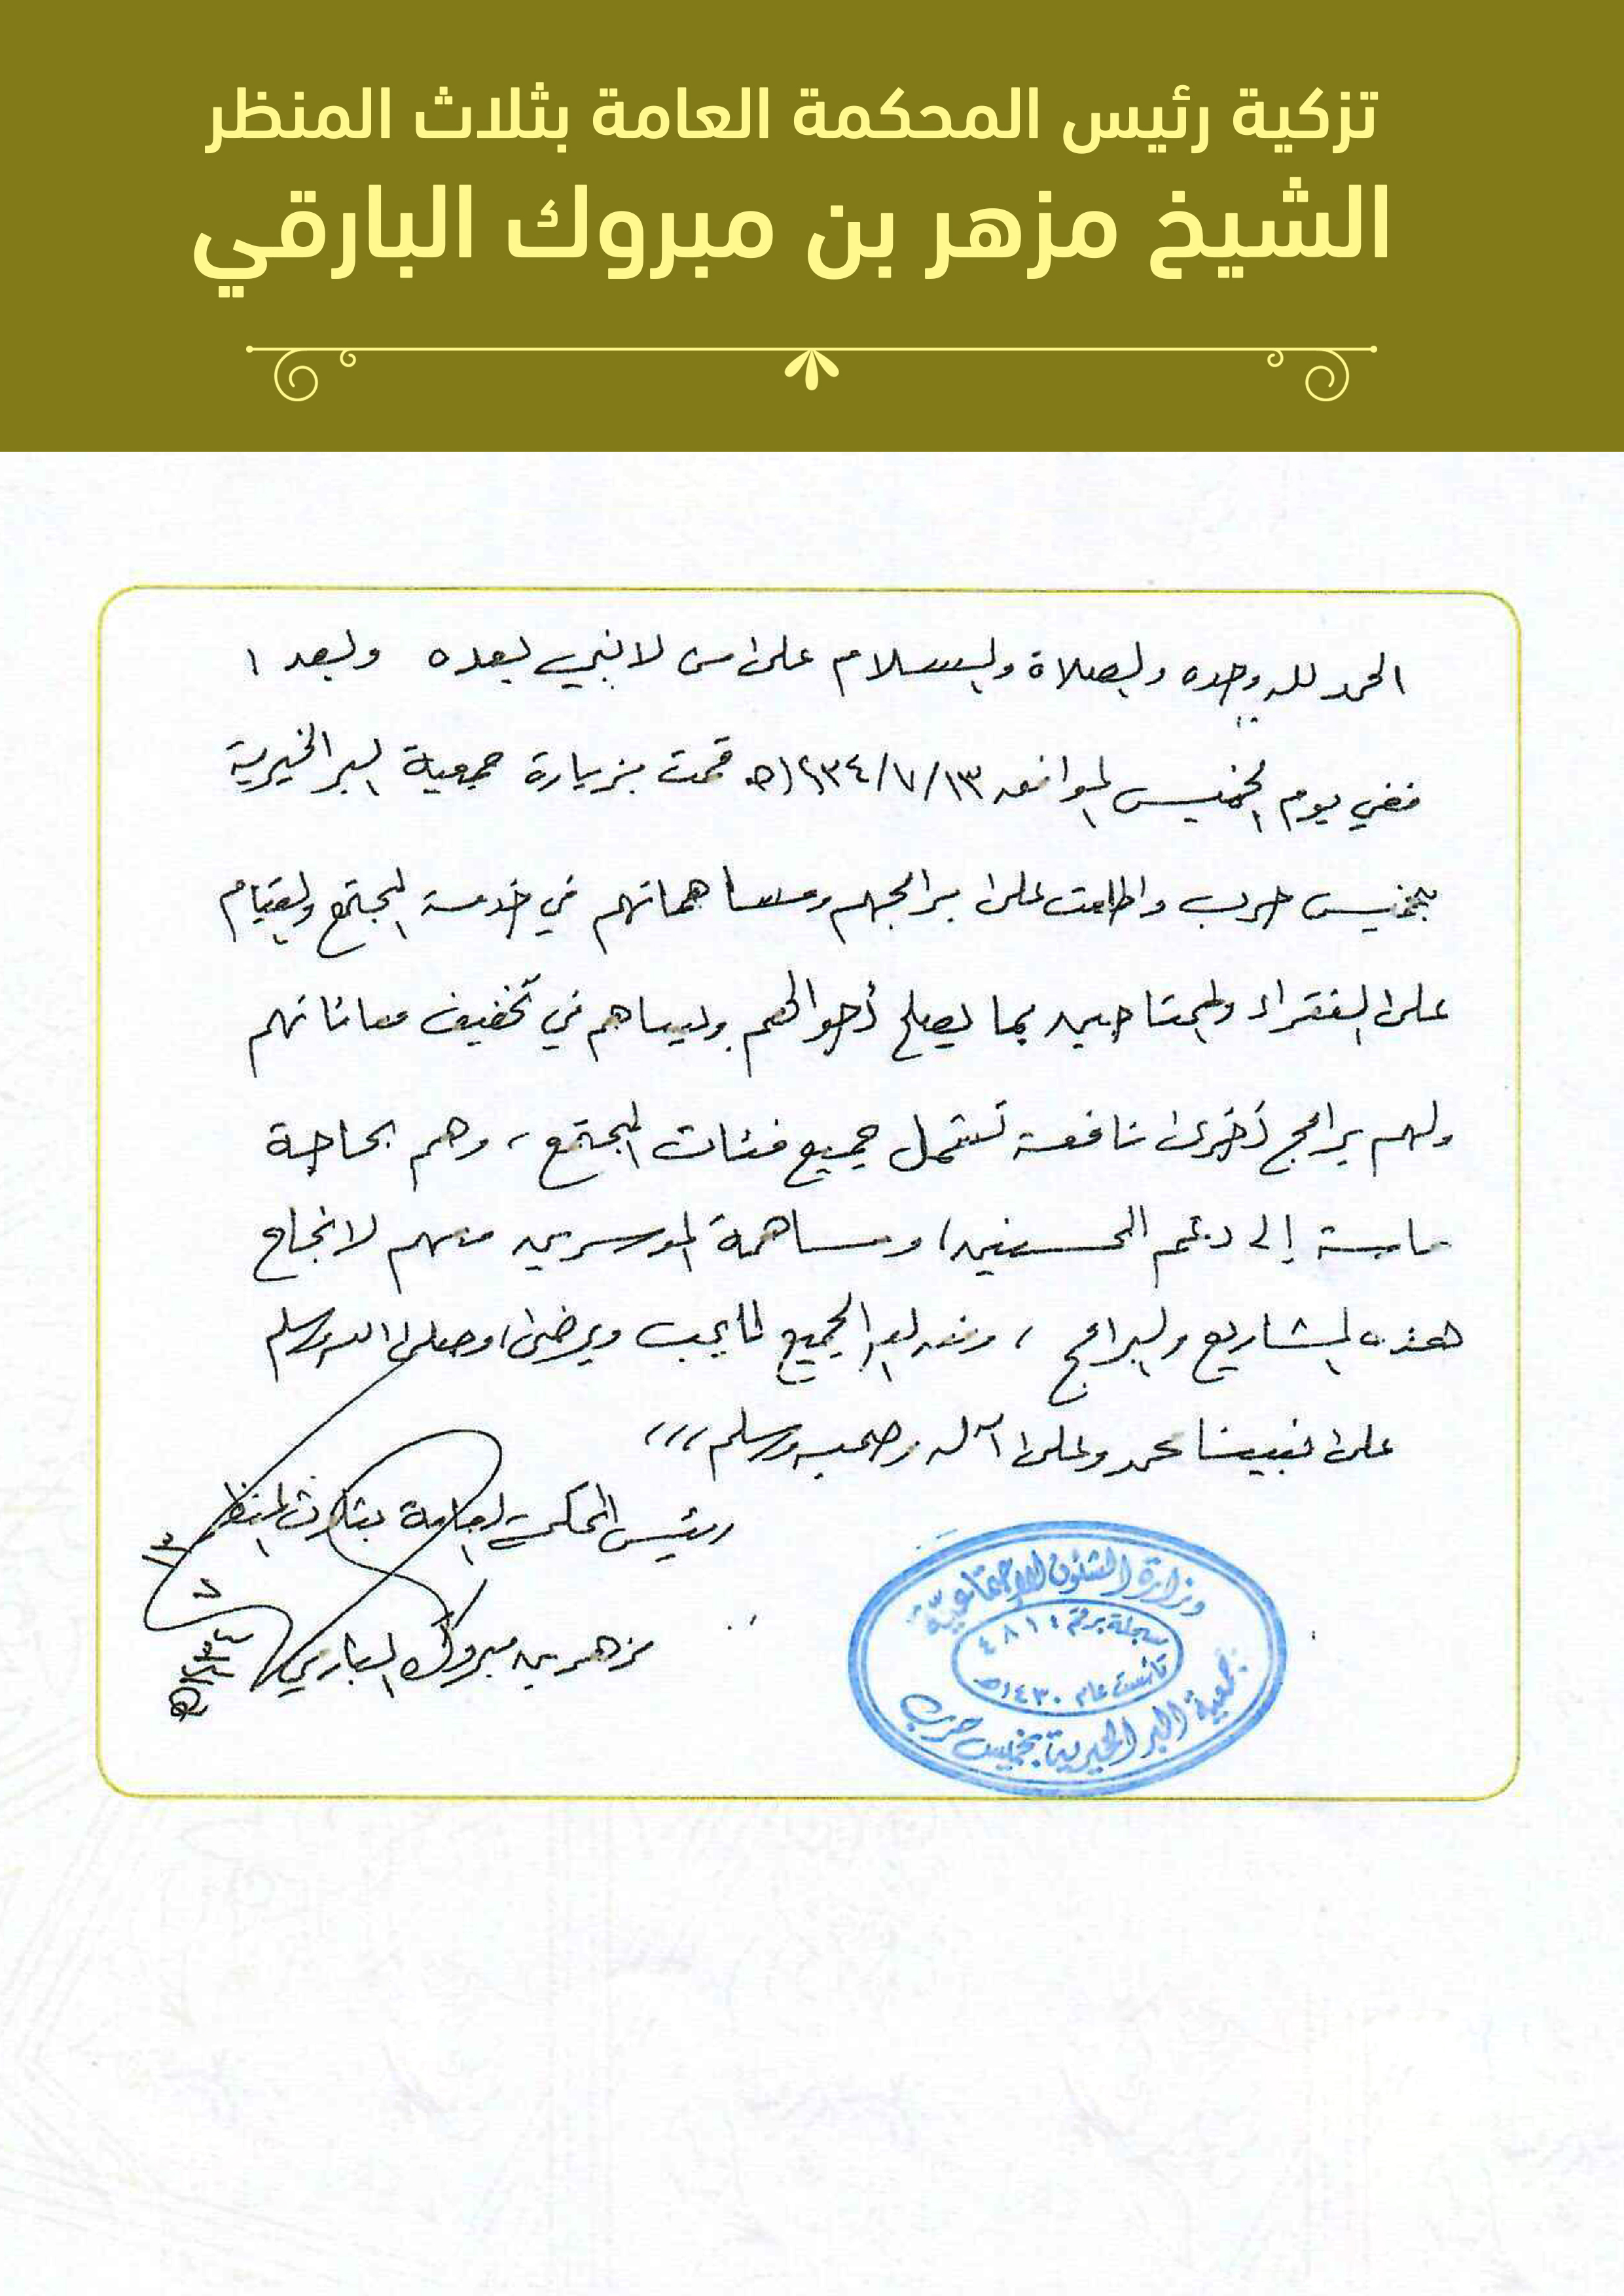 تزكية رئيس المحكمة العامة بثلاث المنظر
الشيخ مزهر بن مبروك البارقي
الحمد لله وحده والصلاة والسلام على من لا نبي بعده وبعد
ففي يوم الخميس الموافق ١٤٣٤/٧/١٣هـ قمت بزيارة جمعية البر الخيرية
بخميس حرب واطلعت على برامجهم ومساهماتهم في خدمة المجتمع والقيام
على الفقراء والمحتاجين بما يصلح أحوالهم ويساهم في تخفيف معاناتهم
ولهم برامج أخرى نافعة تشمل جميع فئات المجتمع، وهم بحاجة
ماسة إلى دعم المحسنين، ومساهمة الموسرين منهم لانجاح
هذه المشاريع والبرامج، وفق الله الجميع لما يحب ويرضى، وصلى الله وسلم
على نبينا محمد وعلى آله وصحبه وسلم،،،
رئيس المحكمة العامة بثلاث المنظر
مزهر بن مبروك البارقي
١٣
٧
١٤٣٤هـ
وزارة الشئون الاجتماعية
مسجلة برقم
تأسست عام ١٤٣٠هـ
جمعية البر الخيرية بخميس حرب